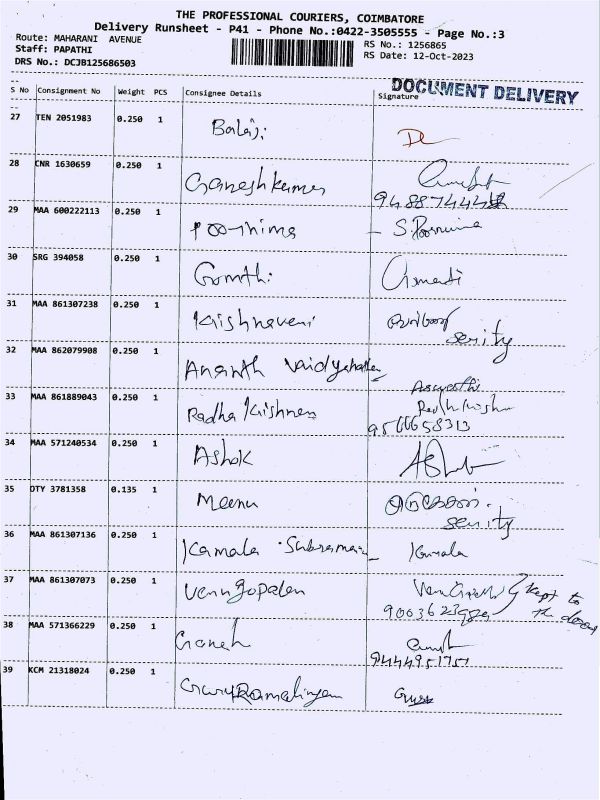 THE PROFESSIONAL COURIERS, COIMBATORE
Delivery Runsheet - P41 - Phone No.:0422-3505555 - Page No.:3
Route: MAHARANI AVENUE RS No.: 1256865
Staff: PAPATHI RS Date: 12-Oct-2023
DRS No.: DCJB125686503
DOCUMENT DELIVERY
S No Consignment No Weight PCS Consignee Details Signature
27 TEN 2051983 0.250 1 Balaji
28 CNR 1630659 0.250 1 Ganeshkumar
29 MAA 600222113 0.250 1 Poornima S. Poornima
30 SRG 394058 0.250 1 Gomthi
31 MAA 861307238 0.250 1 Krishnaveni
serity
32 MAA 862079908 0.250 1 Ananth Vaidyanathan
33 MAA 861889043 0.250 1 Radha Krishnan
9566658313
34 MAA 571240534 0.250 1 Ashok
35 DTY 3781358 0.135 1 Meenu
serity
36 MAA 861307136 0.250 1 Kamala Subraman Kamala
37 MAA 861307073 0.250 1 Venugopalan kept to
the door
38 MAA 571366229 0.250 1 Ganesh
39 KCM 21318024 0.250 1 GuruRamalingam Guru